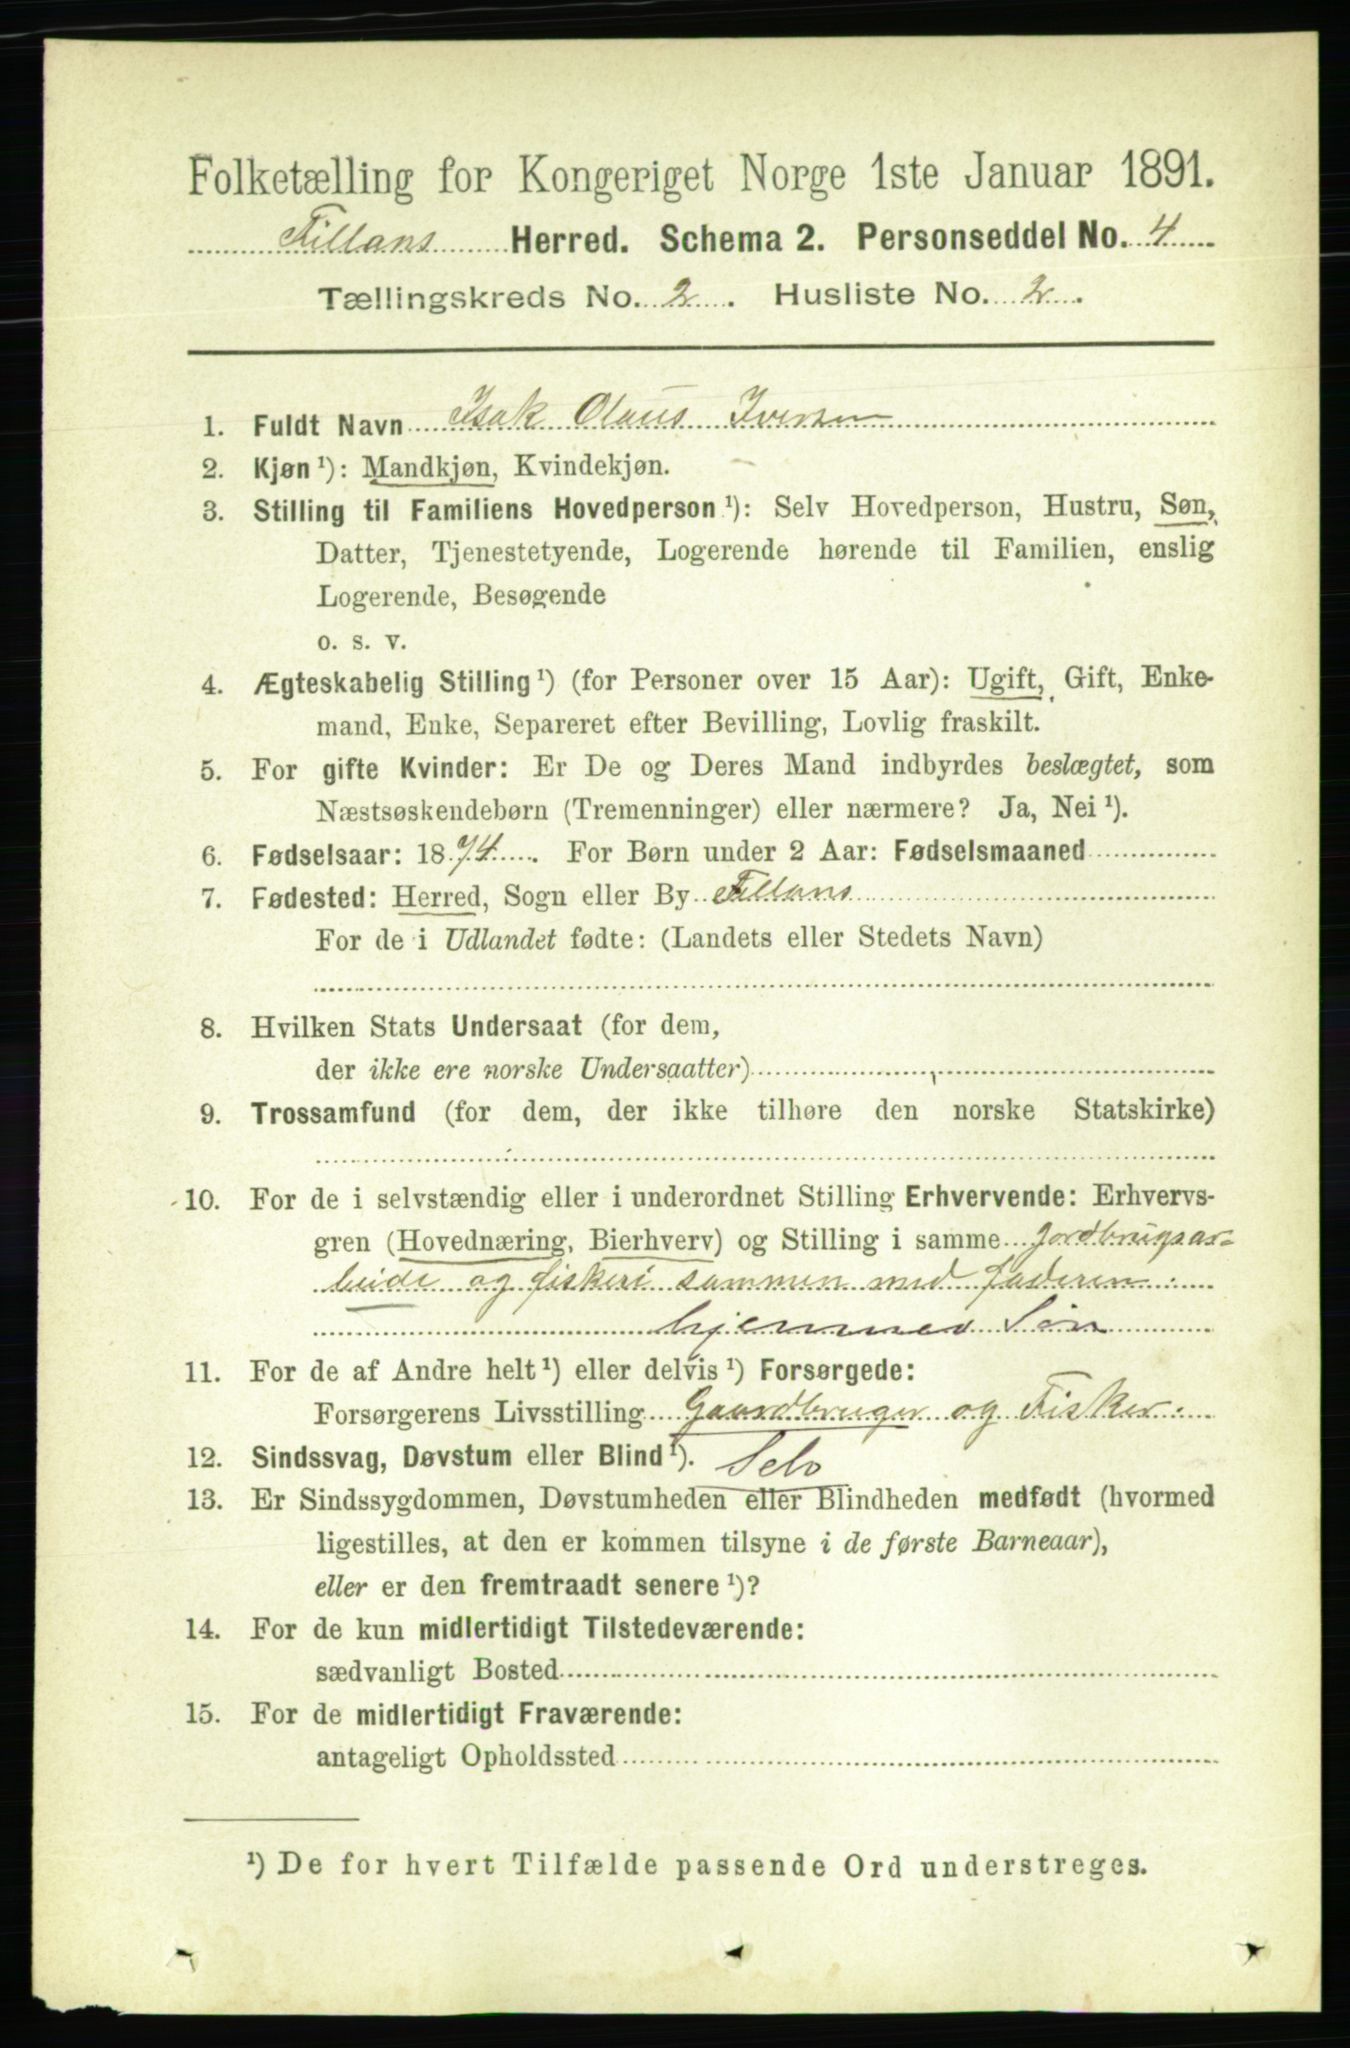 Folketælling for Kongeriget Norge 1ste Januar 1891.
Fillans Herred. Schema 2. Personseddel No. 4
Tællingskreds No. 2. Husliste No. 2.
1. Fuldt Navn Isak Olaus Iversen
2. Kjøn ¹): Mandkjøn, Kvindekjøn.
3. Stilling til Familiens Hovedperson ¹): Selv Hovedperson, Hustru, Søn,
Datter, Tjenestetyende, Logerende hørende til Familien, enslig
Logerende, Besøgende
o. s. v.
4. Ægteskabelig Stilling ¹) (for Personer over 15 Aar): Ugift, Gift, Enke-
mand, Enke, Separeret efter Bevilling, Lovlig fraskilt.
5. For gifte Kvinder: Er De og Deres Mand indbyrdes beslægtet, som
Næstsøskendebørn (Tremenninger) eller nærmere? Ja, Nei ¹).
6. Fødselsaar: 1874. For Børn under 2 Aar: Fødselsmaaned
7. Fødested: Herred, Sogn eller By Fillans
For de i Udlandet fødte: (Landets eller Stedets Navn)
8. Hvilken Stats Undersaat (for dem,
der ikke ere norske Undersaatter)
9. Trossamfund (for dem, der ikke tilhøre den norske Statskirke)
10. For de i selvstændig eller i underordnet Stilling Erhvervende: Erhvervs-
gren (Hovednæring, Bierhverv) og Stilling i samme Jordbrugsar-
beide og fiskeri sammen med faderen.
hjemmev. Søn
11. For de af Andre helt ¹) eller delvis ¹) Forsørgede:
Forsørgerens Livsstilling Gaardbruger og Fisker.
12. Sindssvag, Døvstum eller Blind ¹). Selv
13. Er Sindssygdommen, Døvstumheden eller Blindheden medfødt (hvormed
ligestilles, at den er kommen tilsyne i de første Barneaar),
eller er den fremtraadt senere ¹)?
14. For de kun midlertidigt Tilstedeværende:
sædvanligt Bosted
15. For de midlertidigt Fraværende:
antageligt Opholdssted
¹) De for hvert Tilfælde passende Ord understreges.